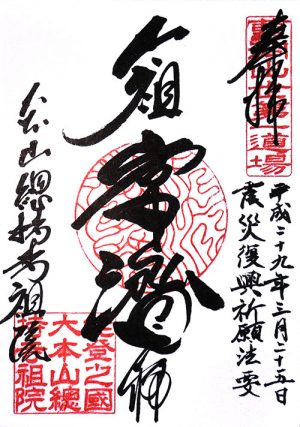 曹洞出世第一道場
奉拝
平成二十九年三月二十五日
震災復興祈願法要
太祖常濟大師
大本山總持寺祖院
能登之國
大本山總
持寺祖院